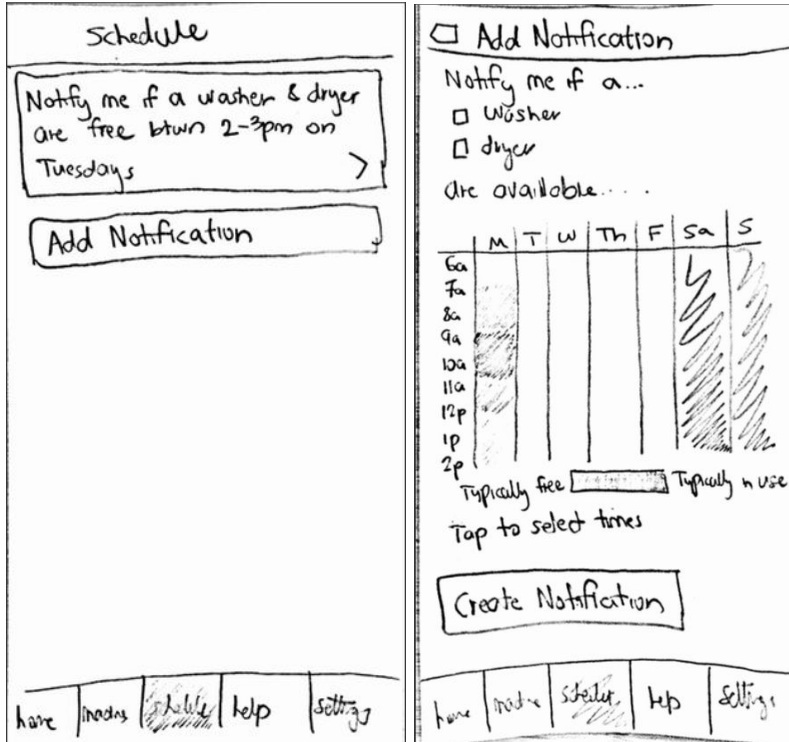 Schedule
Notify me if a washer & dryer
are free btwn 2-3pm on
Tuesdays >
Add Notification
home
schedule
help
settings
Add Notification
Notify me if a...
washer
dryer
are available....
M T W Th F Sa S
6a
7a
8a
9a
10a
11a
12p
1p
2p
Typically free
Typically in use
Tap to select times
Create Notification
home
help
settings